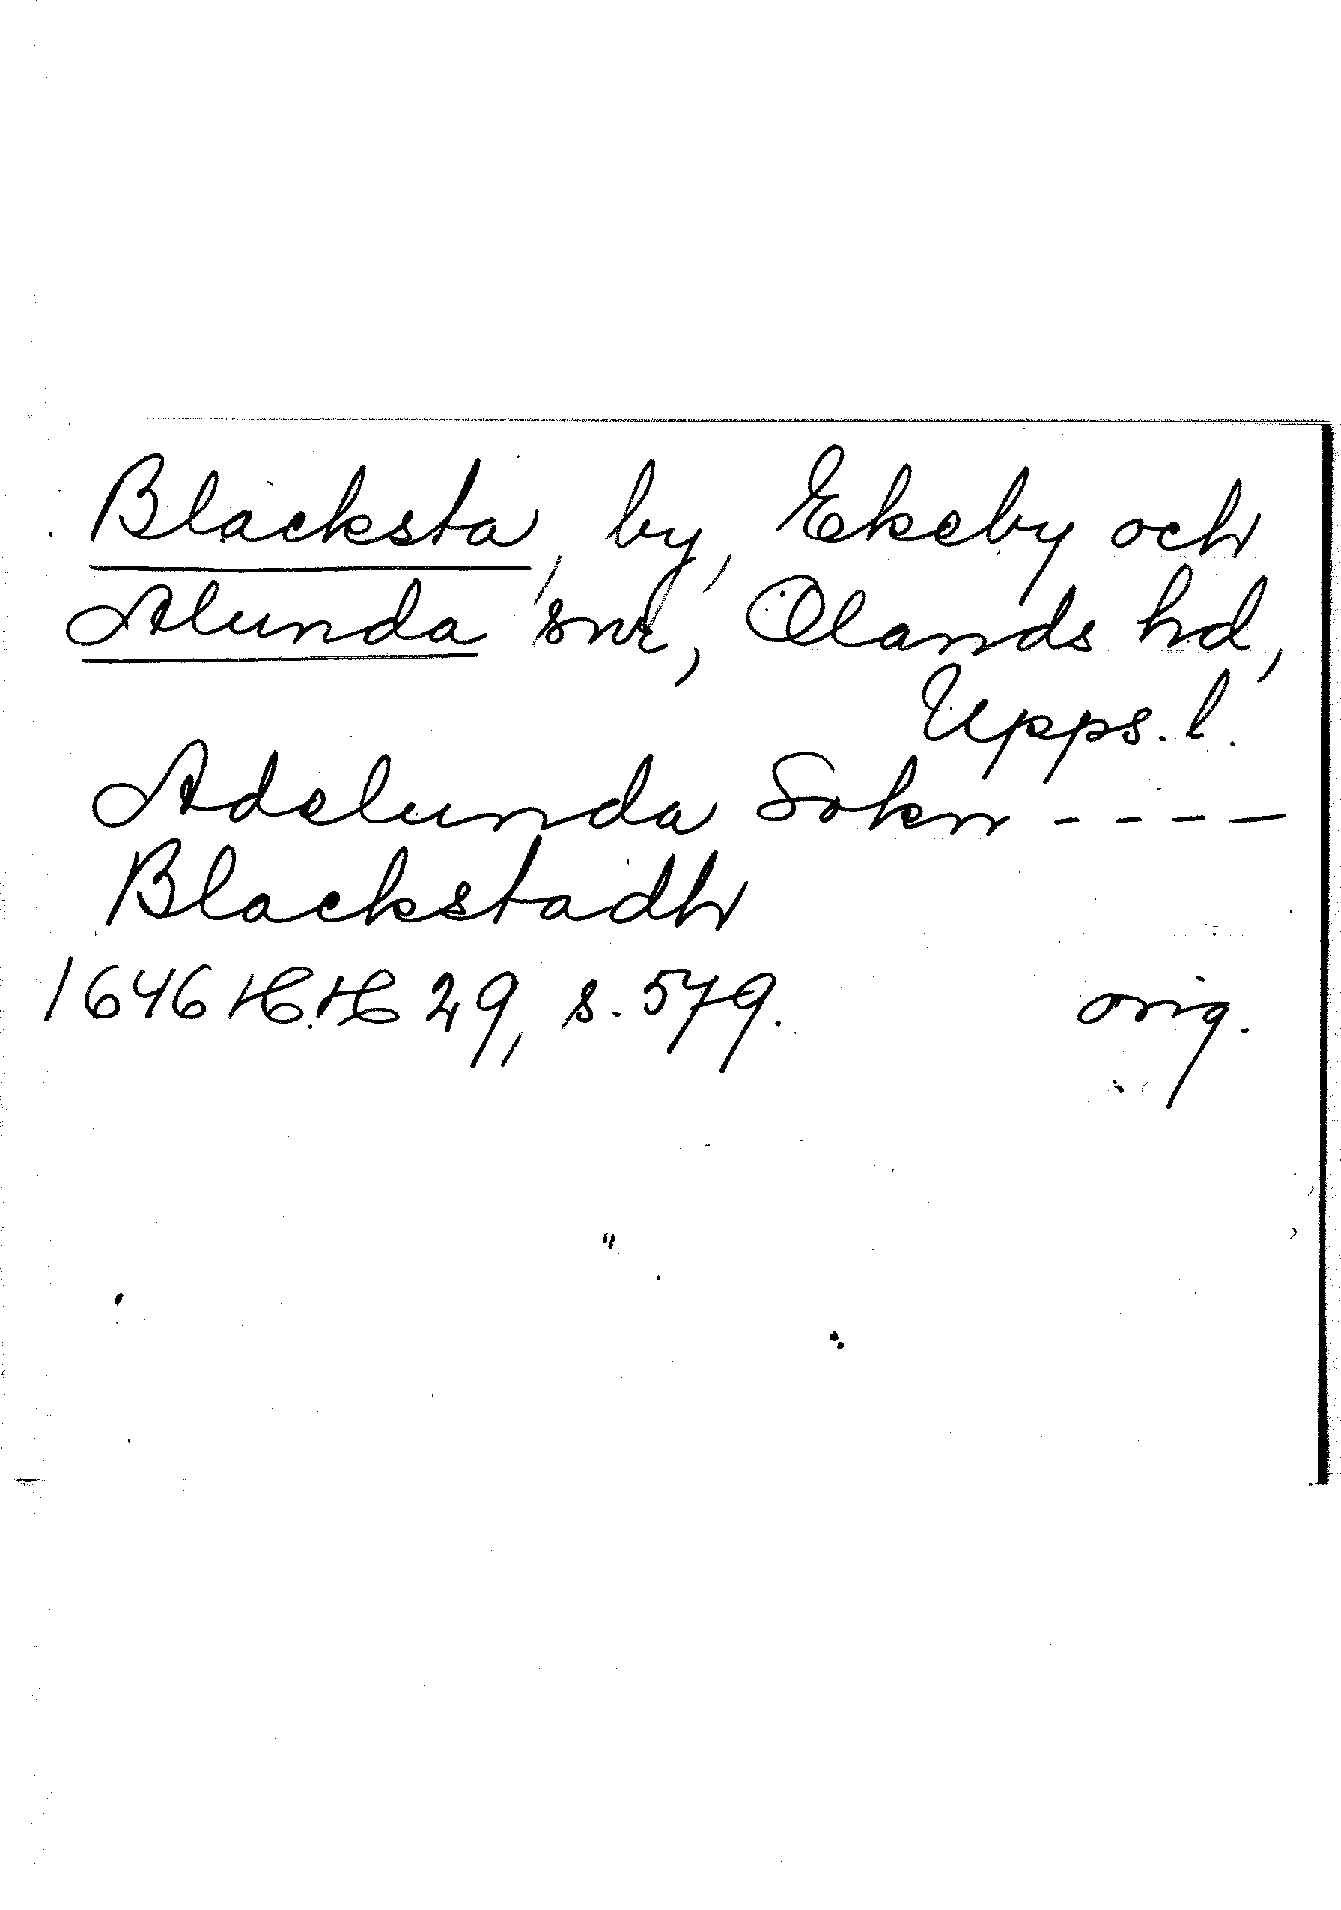 Blacksta, by, Ekeby och
Alunda snr, Olands hd,
Upps. l.
Adelunda Sokn ----
Blackstadh
1646 H.H 29, s. 579. orig.